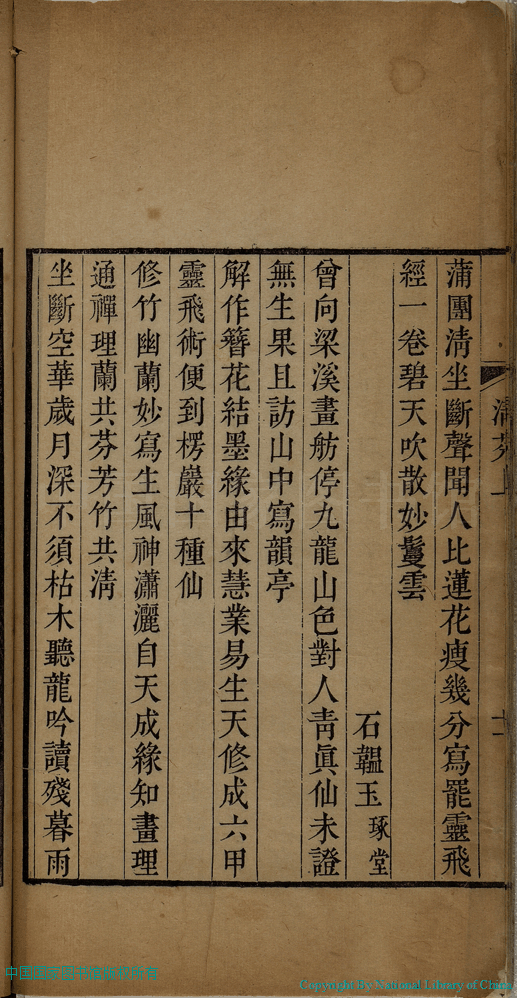 蒲團清坐斷聲聞人比蓮花瘦幾分寫罷靈飛
經一卷碧天吹散妙鬘雲
石韞玉琢堂
曾向梁溪畫舫停九龍山色對人靑眞仙未證
無生果且訪山中寫韻亭
解作簪花結墨緣由來慧業易生天修成六甲
靈飛術便到楞嚴十種仙
修竹幽蘭妙寫生風神瀟灑自天成緣知畫理
通禪理蘭共芬芳竹共淸
坐斷空華歲月深不須枯木聽龍吟讀殘暮雨
清芬上
十一
Copyright By National Library of China